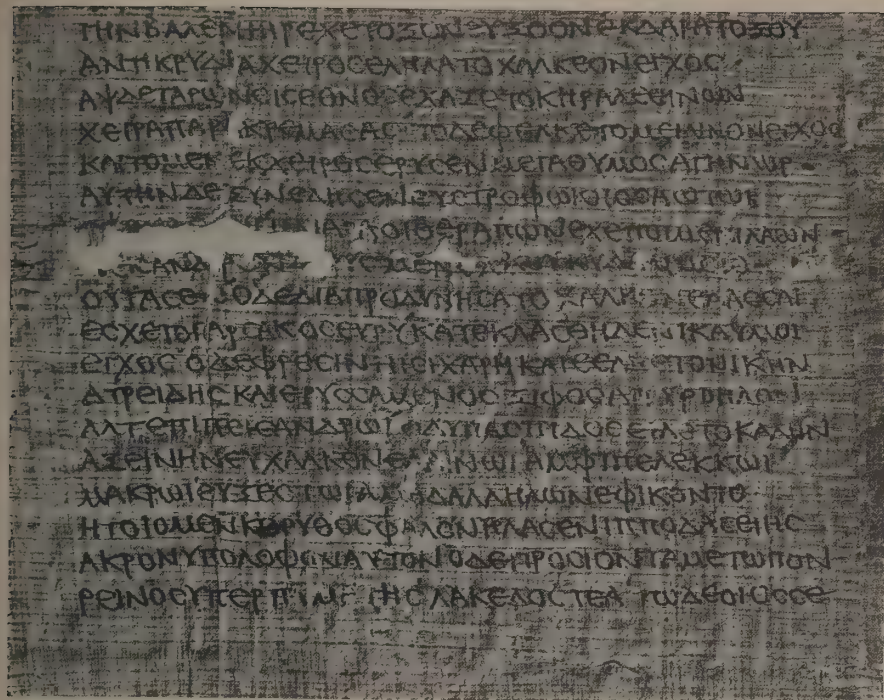 ΤΗΝΒΑΛΕΝΗΙΡΕΧΕΤΟΞΟΝΕΥΞΟΟΝΕΚΔΑΡΑΤΟΞΟΥ
ΑΝΤΙΚΡΥΔΙΑΧΕΙΡΟCΕΛΗΛΑΤΟΧΑΛΚΕΟΝΕΓΧΟC
ΑΨΔΕΤΑΡΩΝΕΙCΕΘΝΟCΕΧΑΖΕΤΟΚΗΡΑΛΕΕΙΝΩΝ
ΧΕΙΡΑΠΑΡΑΚΡΕΜΑCΑCΤΟΔΕΦΕΛΚΕΤΟΜΕΙΛΙΝΟΝΕΓΧΟC
ΚΑΙΤΟΜΕΝΕΚΧΕΙΡΟCΕΡΥCΕΝΜΕΓΑΘΥΜΟCΑΓΗΝΩΡ
ΑΥΤΗΝΔΕΞΥΝΕΔΗCΕΝΕΥCΤΡΟΦΩΙΟΙΟCΑΩΤΩΙ
ΑΡΑΟΙΘΕΡΑΠΩΝΕΧΕΠΟΙΜΕΝΙΛΑΩΝ
CΑΝΔΡ
ΟΥΤΑCΕΝΟΔΕΔΙΑΠΡΟΔΥΝΗCΑΤΟΧΑΛΚΟΝΕΛΑCCΑΙ
ΕCΧΕΤΟΓΑΡCΑΚΟCΕΥΡΥΚΑΤΕΚΛΑCΘΗΔΕΝΙΚΑΥΛΩΙ
ΕΓΧΟCΟΔΕΦΡΕCΙΝΗΙCΙΧΑΡΗΚΑΙΕΕΛΠΕΤΟΝΙΚΗΝ
ΑΤΡΕΙΔΗCΚΑΙΕΡΥCCΑΜΕΝΟCΞΙΦΟCΑΡΓΥΡΟΗΛΟΝ
ΑΛΤΕΠΙΠΕΙCΑΝΔΡΩΙΟΔΥΠΑCΠΙΔΟCΕΙΛΕΤΟΚΑΛΗΝ
ΑΞΕΙΝΗΝΕΥΧΑΛΚΟΝΕΛΑΙΝΩΙΑΜΦΙΠΕΛΕΚΚΩΙ
ΜΑΚΡΩΙΕΥΞΕCΤΩΙΑΜΑΔΑΛΛΗΛΩΝΕΦΙΚΟΝΤΟ
ΗΤΟΙΟΜΕΝΚΟΡΥΘΟCΦΑΛΟΝΗΛΑCΕΝΙΠΠΟΔΑCΕΙΗC
ΑΚΡΟΝΥΠΟΛΟΦΟΝΑΥΤΟΝΟΔΕΠΡΟCΙΟΝΤΑΜΕΤΩΠΟΝ
ΡΕΙΝΟCΥΠΕΡΠΥΜΑΤΗCΛΑΚΕΔΟCΤΕΑΤΩΔΕΟΙΟCCΕ